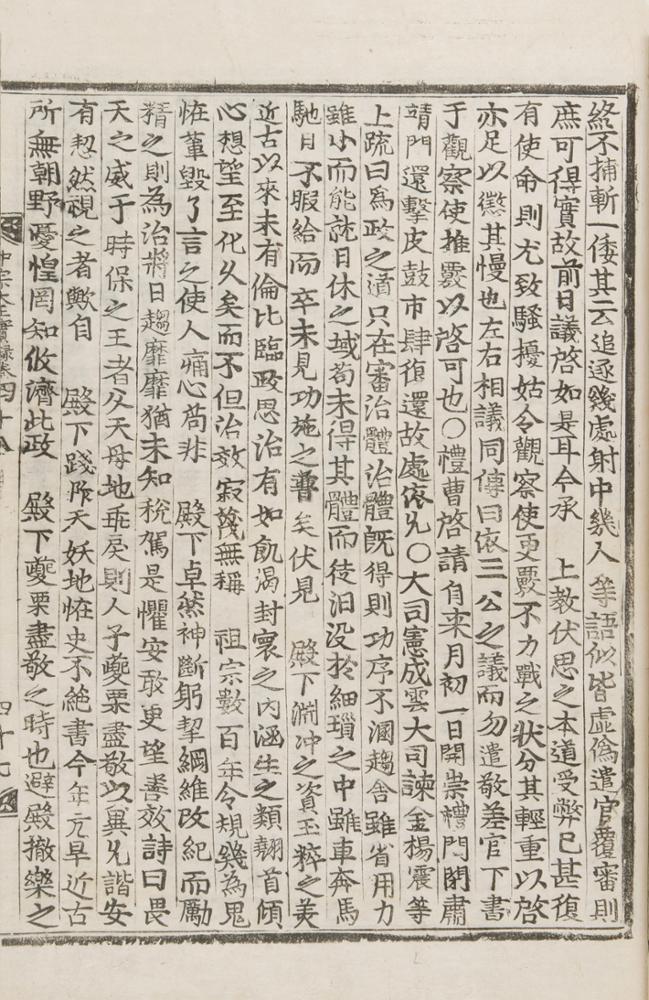 終不捕斬一倭其云追逐幾處射中幾人等語似皆虛僞遣官覆審則
庶可得實故前日議啓如是耳今承　上教伏思之本道受弊已甚復
有使命則尤致騷擾姑令觀察使更覈不力戰之狀分其輕重以啓
亦足以懲其慢也左右相議同傳曰依三公之議而勿遣敬差官下書
于觀察使推覈以啓可也○禮曹啓請自来月初一日開崇禮門閉肅
靖門還擊皮鼓市肆復還故處依允○大司憲成雲大司諫金楊震等
上疏曰爲政之道只在審治體治體旣得則功序不溷趨舍雖省用力
雖小而能就日休之域苟未得其體而徒汩没於細瑣之中雖車奔馬
馳日不暇給而卒未見功施之普矣伏見　殿下淵冲之資玉粹之美
近古以來未有倫比臨政思治有如飢渴封寰之内涵生之類翹首傾
心想望至化久矣而不但治效寂蔑無稱　祖宗數百年令規幾為鬼
恠輩毁了言之使人痛心苟非　殿下卓然神斷躬挈綱維改紀而勵
精之則為治將日趨靡靡猶未知稅駕是懼安敢更望善效詩曰畏
天之威于時保之王者父天母地乖戾則人子夔栗盡敬以冀允諧安
有恝然視之者歟自　殿下踐阼天妖地恠史不絕書今年亢旱近古
所無朝野憂惶罔知攸濟此政　殿下夔栗盡敬之時也避殿撤樂之
中宗大王實錄卷四十八
四十七